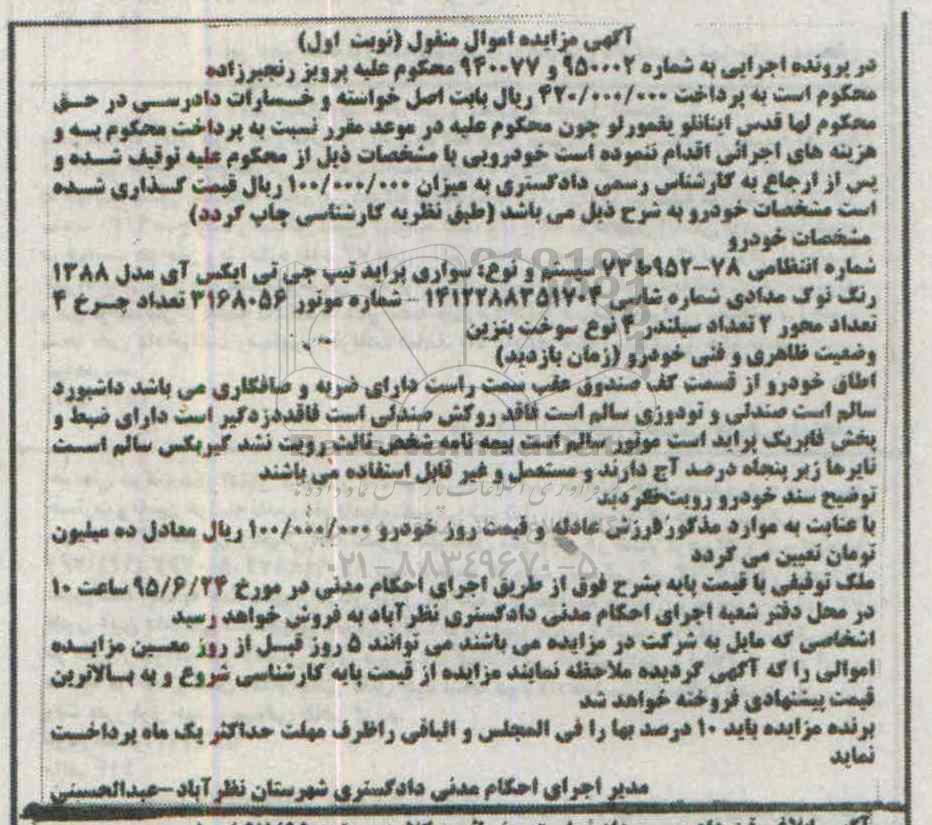 آگهی مزایده اموال منقول (نوبت اول)
در پرونده اجرایی به شماره ۹۵۰۰۰۲ و ۹۴۰۰۷۷ محکوم علیه پرویز رنجبرزاده
محکوم است به پرداخت ۴۲۰/۰۰۰/۰۰۰ ریال بابت اصل خواسته و خسارات دادرسی در حق
محکوم لها قدس اینانلو یغمورلو چون محکوم علیه در موعد مقرر نسبت به پرداخت محکوم به و
هزینه های اجرائی اقدام ننموده است خودرویی با مشخصات ذیل از محکوم علیه توقیف شده و
پس از ارجاع به کارشناس رسمی دادگستری به میزان ۱۰۰/۰۰۰/۰۰۰ ریال قیمت گذاری شده
است مشخصات خودرو به شرح ذیل می باشد (طبق نظریه کارشناسی چاپ گردد)
مشخصات خودرو
شماره انتظامی ۷۸-۹۵۲ط۷۳ سیستم و نوع: سواری پراید تیپ جی تی ایکس آی مدل ۱۳۸۸
رنگ نوک مدادی شماره شاسی ۱۴۱۲۲۸۸۳۵۱۷۰۴ - شماره موتور ۳۱۶۸۰۵۶ تعداد چرخ ۴
تعداد محور ۲ تعداد سیلندر ۴ نوع سوخت بنزین
وضعیت ظاهری و فنی خودرو (زمان بازدید)
اطاق خودرو از قسمت کف صندوق عقب سمت راست دارای ضربه و صافکاری می باشد داشبورد
سالم است صندلی و تودوزی سالم است فاقد روکش صندلی است فاقددزدگیر است دارای ضبط و
پخش فابریک پراید است موتور سالم است بیمه نامه شخص ثالث رویت نشد گیربکس سالم است
تایرها زیر پنجاه درصد آج دارند و مستعمل و غیر قابل استفاده می باشند
توضیح سند خودرو رویت نگردید
با عنایت به موارد مذکور ارزش عادله و قیمت روز خودرو ۱۰۰/۰۰۰/۰۰۰ ریال معادل ده میلیون
تومان تعیین می گردد
۰۲۱-۸۸۳۴۹۶۷۰-۵
ملک توقیفی با قیمت پایه بشرح فوق از طریق اجرای احکام مدنی در مورخ ۹۵/۶/۲۴ ساعت ۱۰
در محل دفتر شعبه اجرای احکام مدنی دادگستری نظرآباد به فروش خواهد رسید
اشخاصی که مایل به شرکت در مزایده می باشند می توانند ۵ روز قبل از روز معین مزایده
اموالی را که آگهی گردیده ملاحظه نمایند مزایده از قیمت پایه کارشناسی شروع و به بالاترین
قیمت پیشنهادی فروخته خواهد شد
برنده مزایده باید ۱۰ درصد بها را فی المجلس و الباقی راظرف مهلت حداکثر یک ماه پرداخت
نماید
مدیر اجرای احکام مدنی دادگستری شهرستان نظرآباد-عبدالحسینی